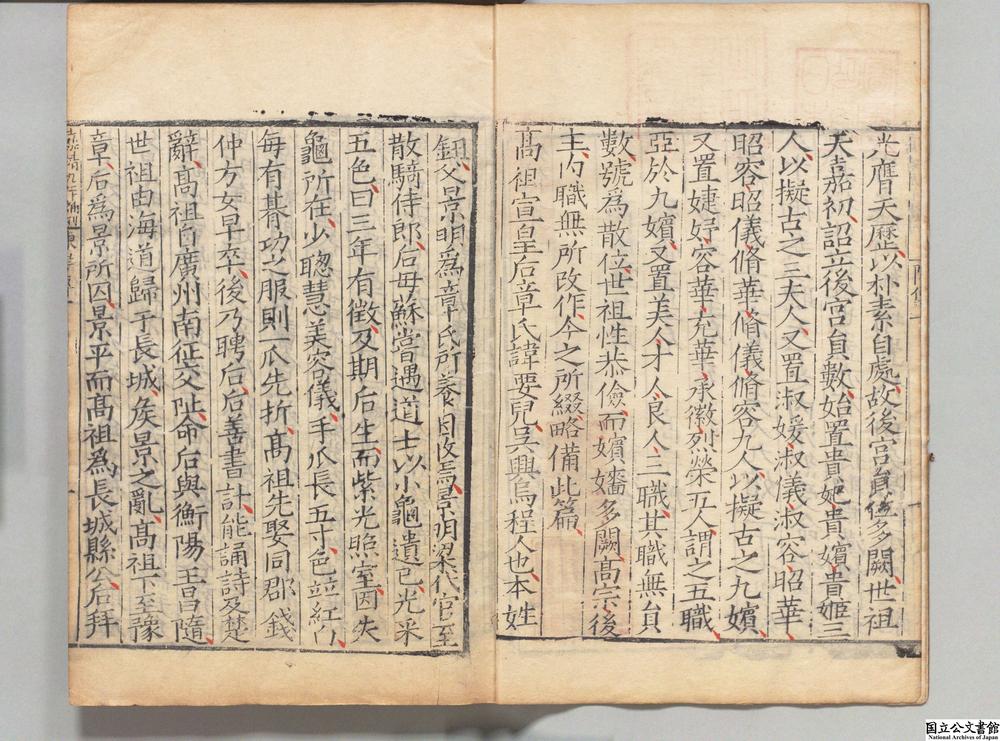 光膺天歷以朴素自處故後宮員位多闕世祖
天嘉初詔立後宮員數始置貴妃貴嬪貴姬三
人以擬古之三夫人又置淑媛淑儀淑容昭華
昭容昭儀脩華脩儀脩容九人以擬古之九嬪
又置婕妤容華充華承徽烈榮五人謂之五職
亞於九嬪又置美人才人良人三職其職無員
數號為散位世祖性恭儉而嬪嬙多闕高宗後
主內職無所改作今之所綴略備此篇
高祖宣皇后章氏諱要兒吳興烏程人也本姓
鈕父景明為章氏所養因改焉景明梁代官至
散騎侍郎后母蘇嘗遇道士以小龜遺已光采
五色曰三年有徵及期后生而紫光照室因失
龜所在少聰慧美容儀手爪長五寸色並紅白
每有朞功之服則一爪先折高祖先娶同郡錢
仲方女早卒後乃聘后后善書計能誦詩及楚
辭高祖自廣州南征交阯命后與衡陽王昌隨
世祖由海道歸于長城侯景之亂高祖下至豫
章后為景所囚景平而高祖為長城縣公后拜
国立公文書館
National Archives of Japan